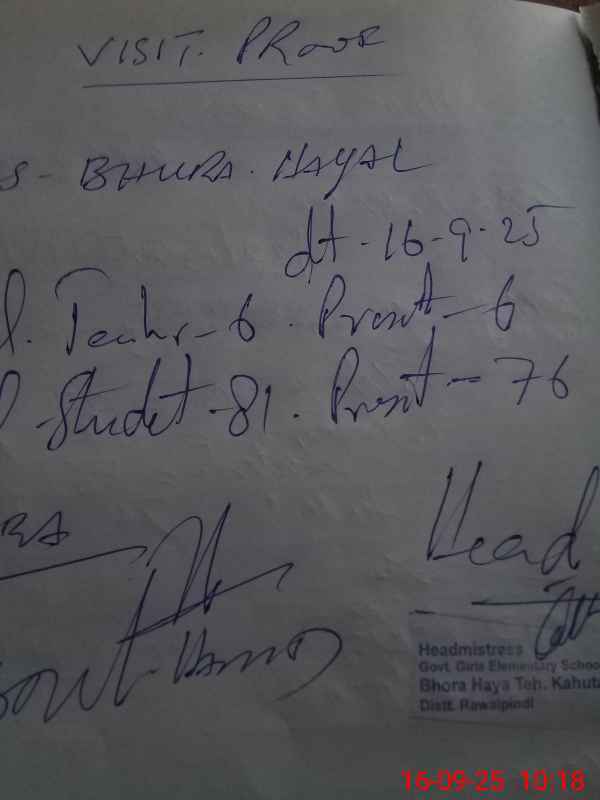 VISIT. PROOF
S - BHURA. HAYAL
dt - 16-9-25
l. Teachr - 6. Presnt - 6
l Studet - 81. Presnt - 76
RA
Head
Headmistress
Govt. Girls Elementary Schoo
Bhora Haya Teh. Kahuta
Distt. Rawalpindi
16-09-25 10:18